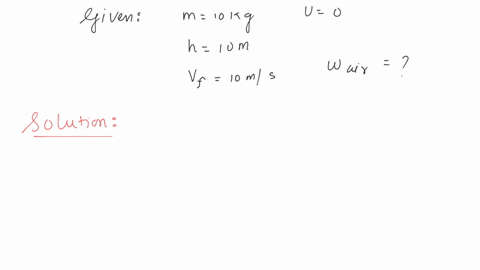 Given: m = 10 Kg U = 0
h = 10 m
V_f = 10 m/s W_air = ?
Solution: